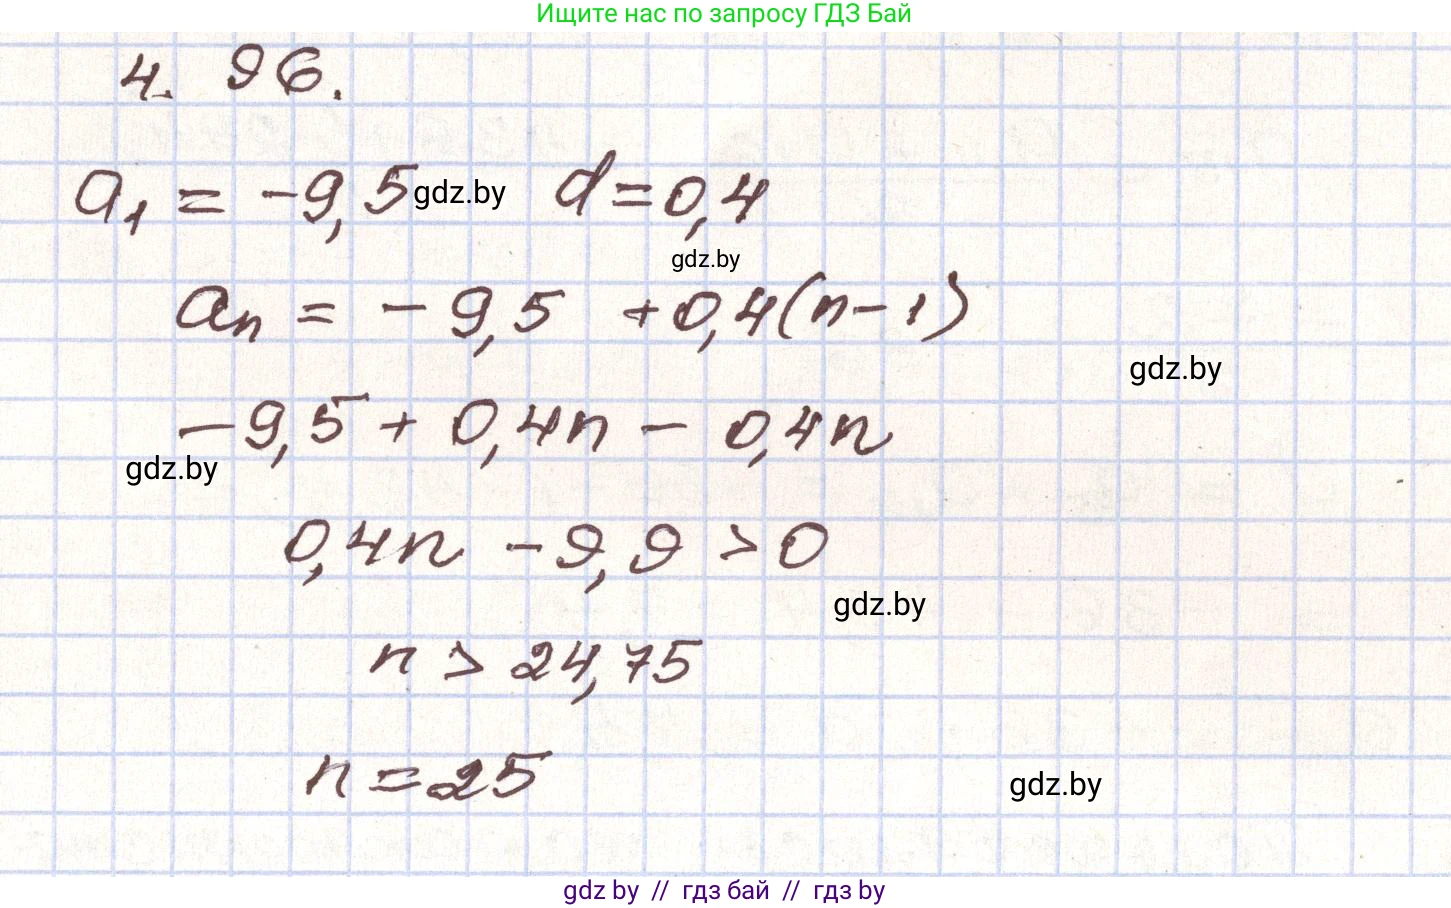 Ищите нас по запросу ГДЗ Бай
4. 96.
a₁ = -9,5 gdz.by d = 0,4
gdz.by
aₙ = - 9,5 + 0,4(n - 1)
gdz.by
- 9,5 + 0,4n - 0,4n
gdz.by
0,4n - 9,9 > 0
gdz.by
n > 24,75
n = 25
gdz.by
gdz by // гдз бай // гдз by